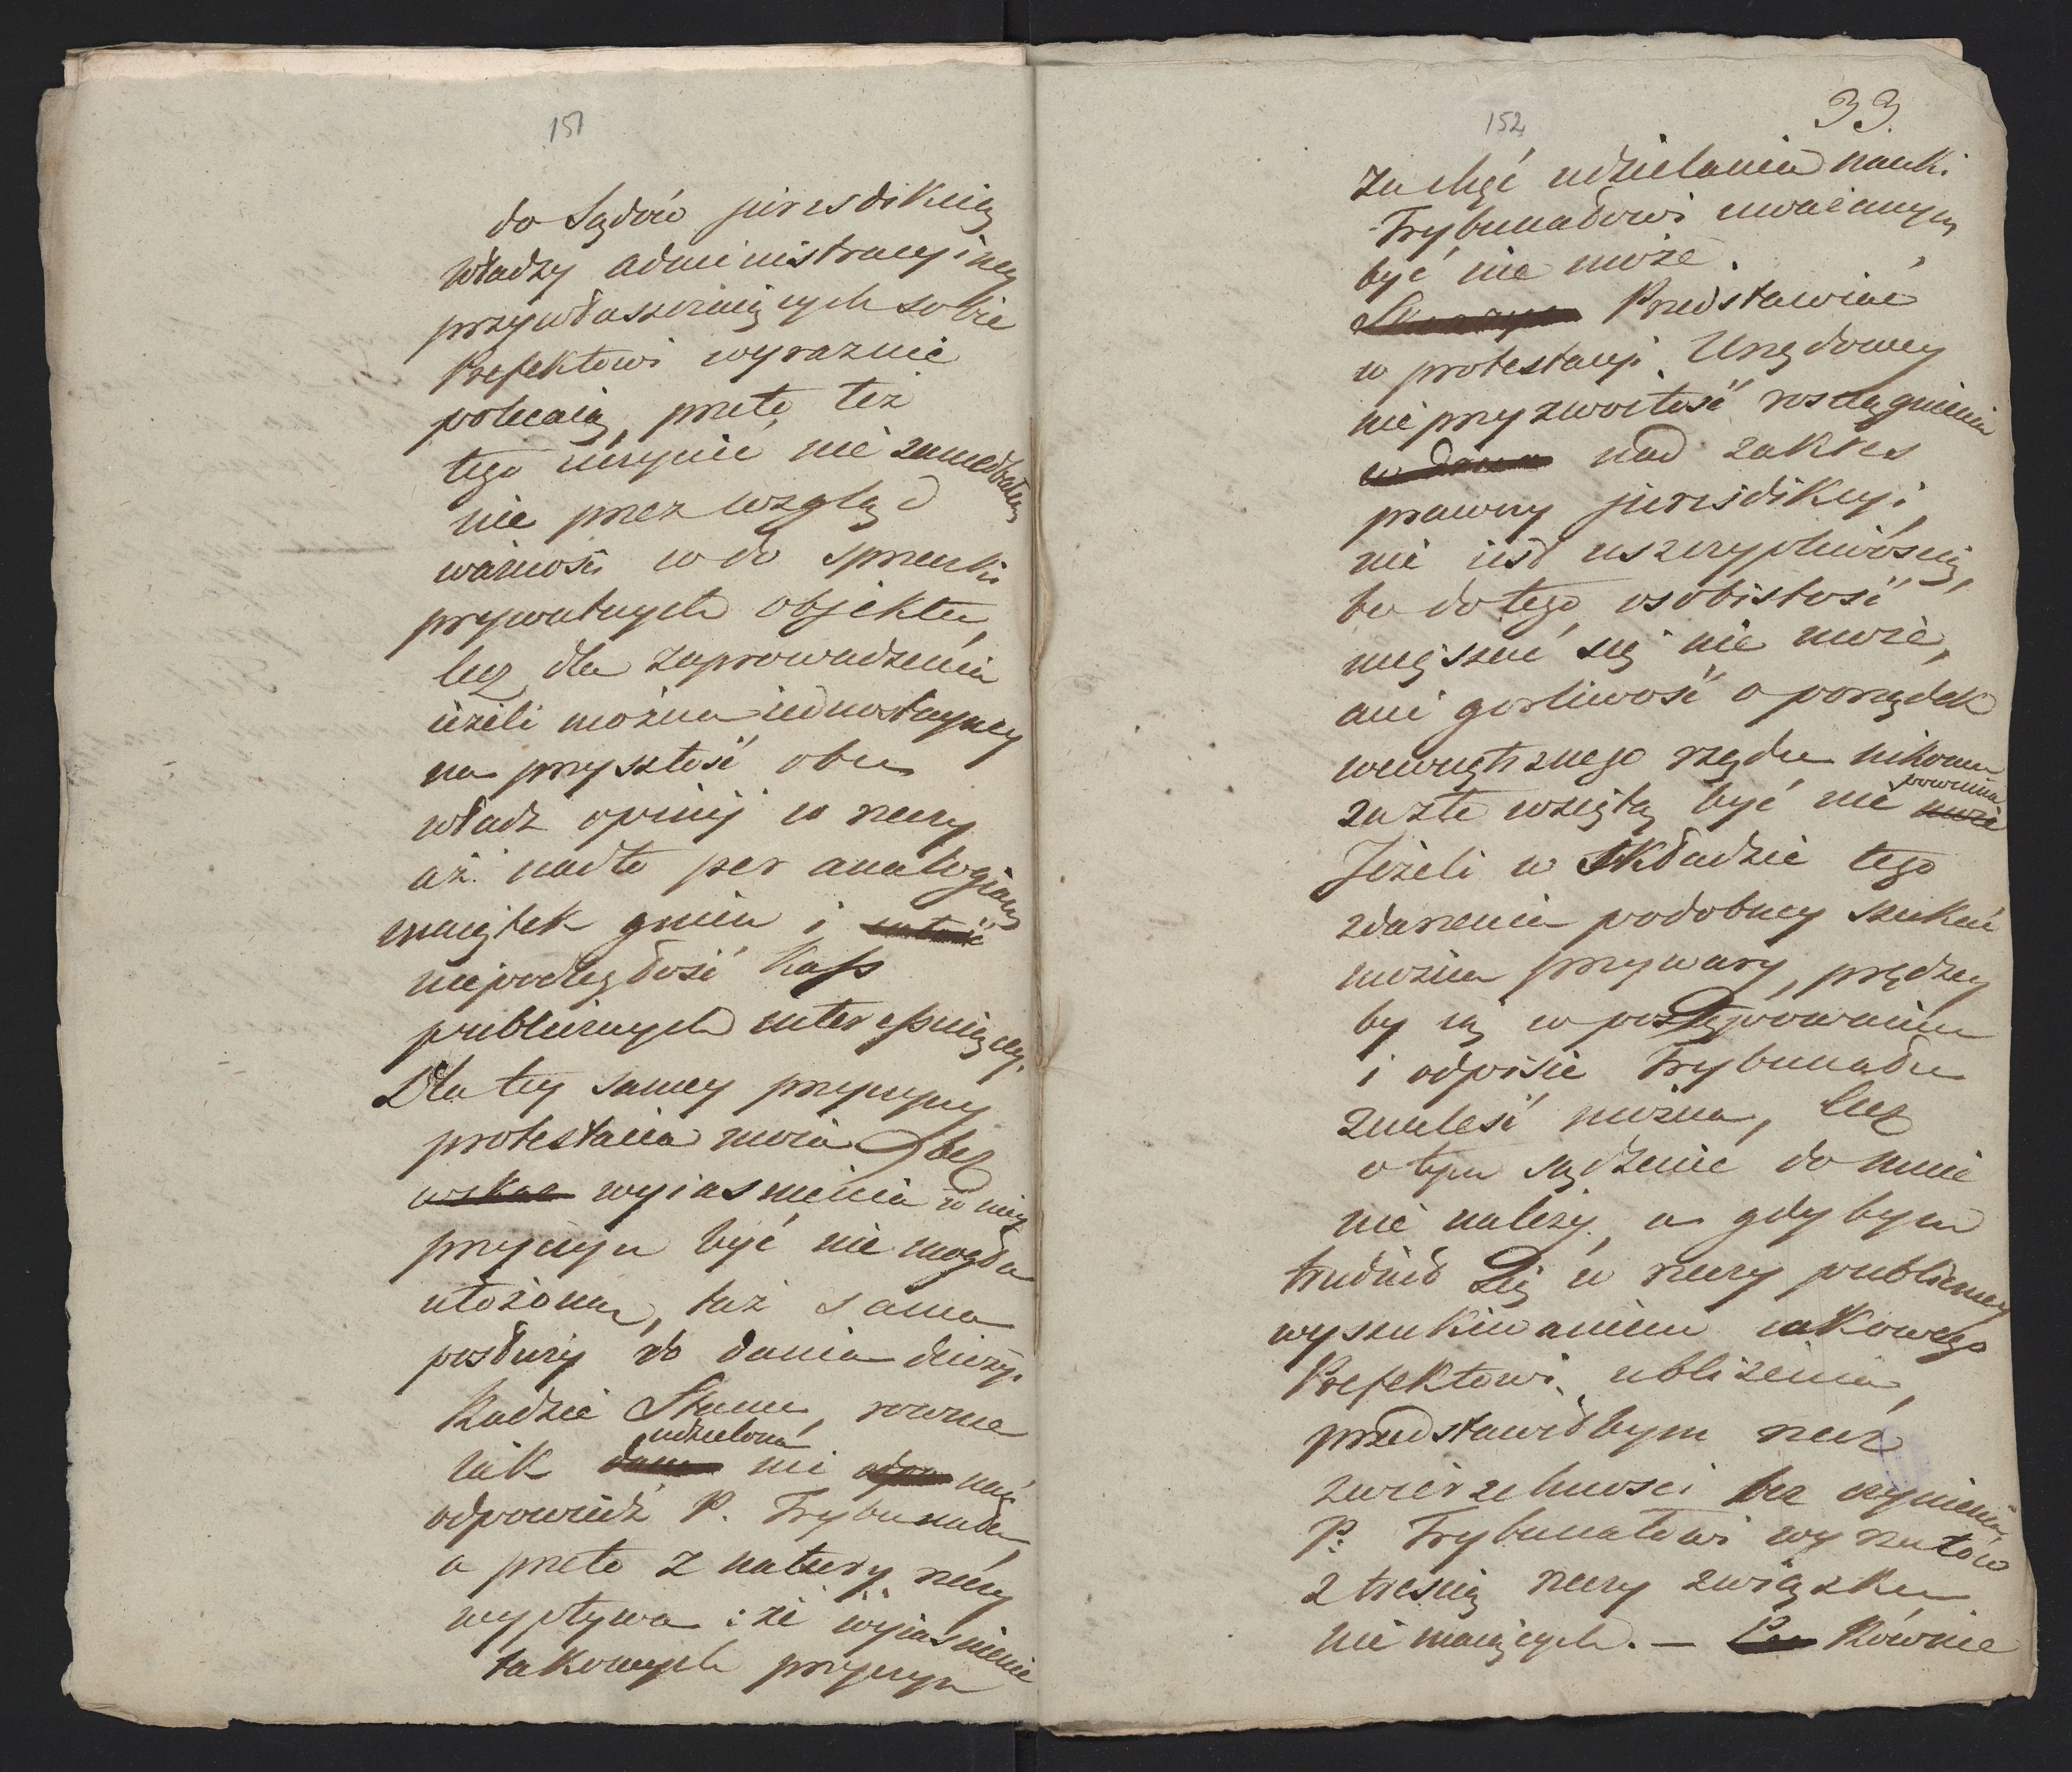 151
do Sądów jurisdikcią
władzy administracyiney
przywłaszczaiących sobie
Prefektowi wyraznie
polecaią, przeto też
tego uczynić nie zaniedbałem
nie przez wzgląd
ważnosci co do sprawki
prywatnych objektu,
lecz dla zaprowadzenia
ieżeli można iednostayney
na przyszłość obu
władz opinij w rzeczy
aż nadto per analogiam
maiątek gmin i
niepodległość Kass
publicznych interessuiącey.
Dla tey samey przyczyny
protestacia moia bez
wyiasnienia w niey
przyczyn być nie mogła
ułożona, taż sama
posłuży do dania decizyi
Radzie Stanu, rownie
iak udzielona mi na nią
odpowiedź P. Trybunału,
a przeto z natury rzeczy
wypływa: że wyiasnienie
takowych przyczyn
152
33.
za chęć udzielania nauki
Trybunałowi uważanym
być nie może.
Przedstawiać
w protestacyi Urzędowey
nieprzyzwoitość rosciągnienia
nad zakres
prawny jurisdikcyi
nie iest uszczypliwoscią,
bo do tego osobistość
mięszać się nie może,
ani gorliwość o porządek
wewnętrznego rządu nikomu
za złe wziętą być nie powinna
może
Jeżeli w składzie tego
zdarzenia podobney szukać
można przywary, prędzey
by ią w postępowaniu
i odpisie Trybunału
znalesć można, lecz
o tym sądzenie do mnie
nie należy, a gdybym
trudnił się w rzeczy publiczney
wyszukiwaniem iakowego
Prefektowi ubliżenia,
przedstawiłbym rzecz
zwierzchnosci bez czynienia
P. Trybunałowi wyrzutów
z trescią rzeczy związku
nie maiących. — Równie